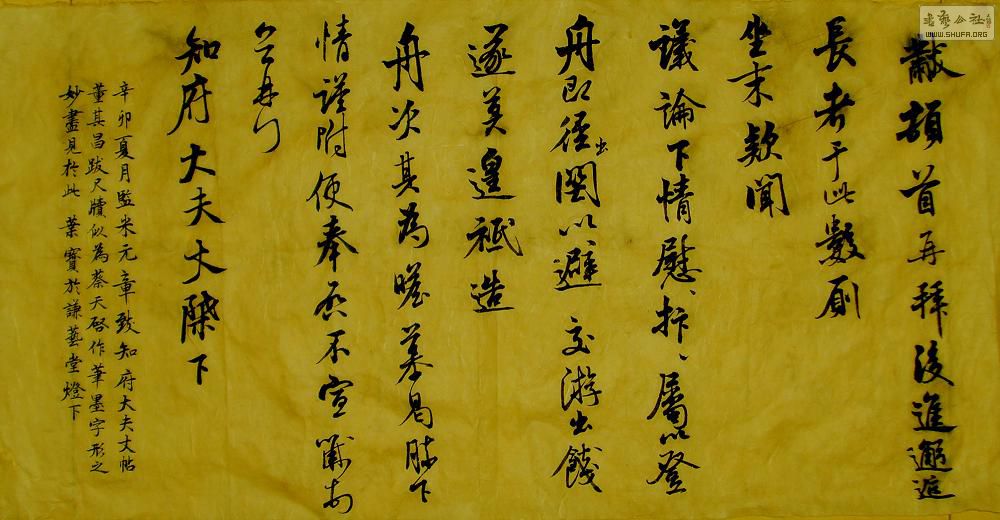 黻頓首再拜後進邂逅
長者于此數厠
坐末欵聞
議論下情慰抃、屬以登
舟即徑出閩以避、交游出餞
遂莫遑祗造
舟次其為瞻慕曷勝下
情謹附便奉啓不宣黻頓
首再拜
知府大夫丈棨下
辛卯夏月臨米元章致知府大夫丈帖
董其昌跋尺牘似為蔡天啓作筆墨字形之
妙盡見於此 葉寶於謙藝堂燈下
書藝公社
WWW.SHUFA.ORG